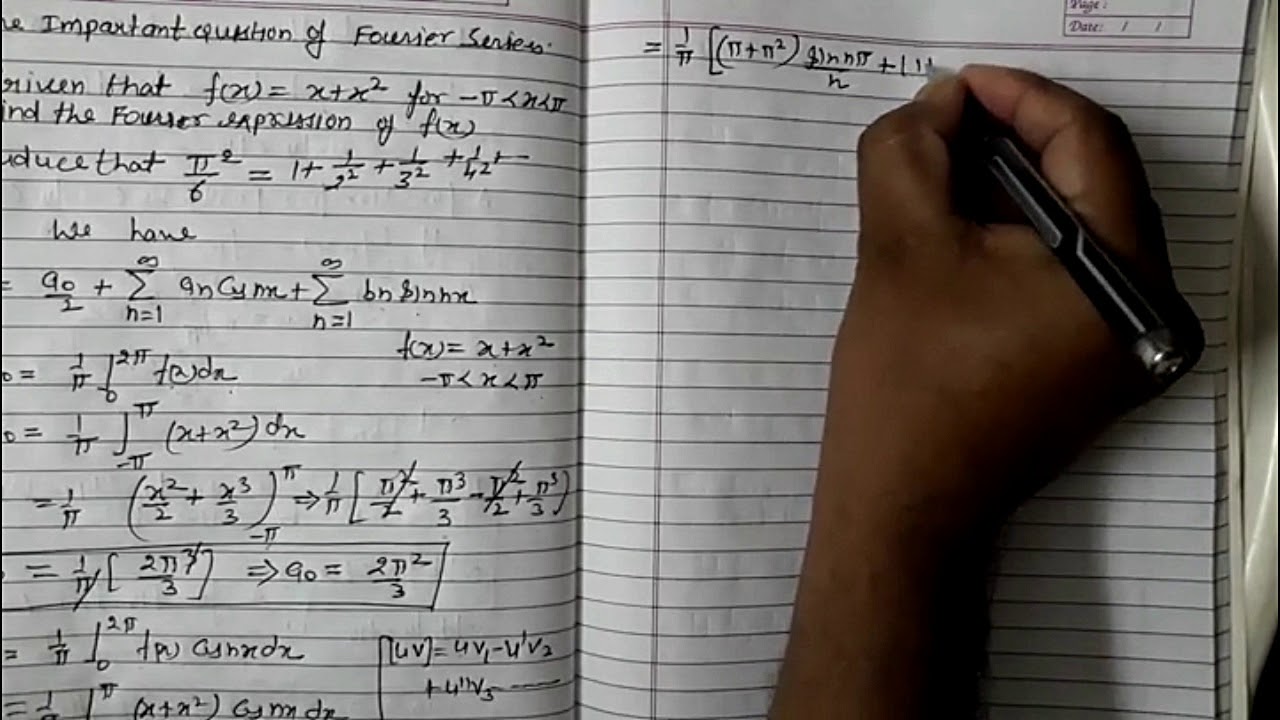 Important question of Fourier Series.
f(x) = x+x² for -π<x<π
the Fourier expression of f(x)
that π²/6 = 1+ 1/2² + 1/3² + 1/4² + —
We have
= a0/2 + ∞ Σ n=1 an Cosnx + ∞ Σ n=1 bn Sinnx
= 1/π ∫0^2π f(x)dx
f(x) = x+x²
-π<x<π
= 1/π ∫-π^π (x+x²) dx
= 1/π (x²/2 + x³/3)-π^π ⇒ 1/π [π²/2 + π³/3 - π²/2 + π³/3]
= 1/π [2π³/3] ⇒ a0 = 2π²/3
= 1/π ∫0^2π f(x) Cosnxdx
[uv] = uv1 - u'v2
+ u''v3 ——
= 1/π ∫^π (x+x²) Cosnxdx
Page:
Date: / /
= 1/π [(π+π²) Sin nπ/n + (1+